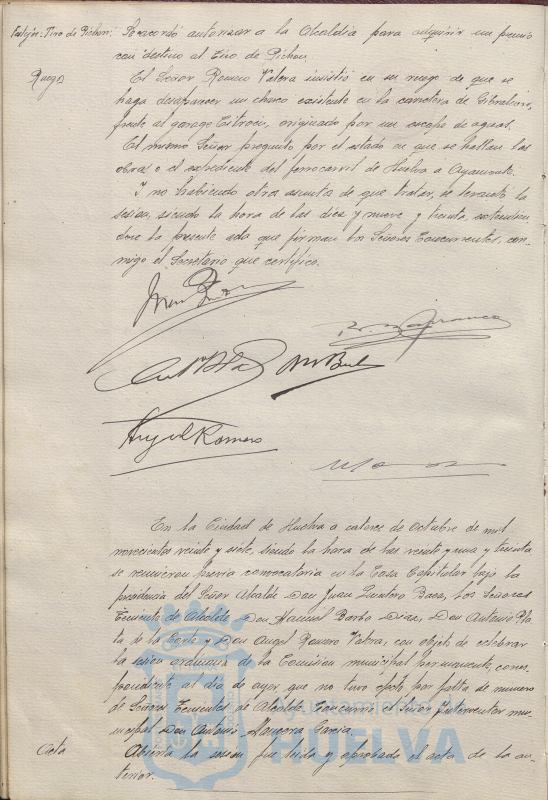 Festejos: Tiro de Pichon; Se acordó autorizar a la Alcaldia para adquirir un premio
con destino al Tiro de Pichon.
Ruego El Señor Romero Valera insistió en su ruego de que se
haga desaparecer un charco existente en la carretera de Gibraleon,
frente al garage Citroen, originado por un escape de aguas.
El mismo Señor preguntó por el estado en que se hallan las
obras o el expediente del ferrocarril de Huelva a Ayamonte.
Y no habiendo otros asuntos de que tratar, se levantó la
sesion, siendo la hora de las diez y nueve y treinta, extendien-
dose la presente acta que firman los Señores Concurrentes, con-
migo el Secretario que certifico.
Angel Romero
En la Ciudad de Huelva a catorce de Octubre de mil
novecientos veinte y siete, siendo la hora de las veinte y una y treinta
se reunieron previa convocatoria en la Casa Capitular bajo la
presidencia del Señor Alcalde Don Juan Quintero Baez, los Señores
Tenientes de Alcalde Don Manuel Barba Diaz, Don Antonio Pla-
ta de la Corte y Don Angel Romero Valera, con objeto de celebrar
la sesion ordinaria de la Comision municipal permanente, corres-
pondiente al dia de ayer que no tuvo efecto por falta de numero
de Señores Tenientes de Alcalde. Concurrió el Señor Interventor mu-
nicipal Don Antonio Garcia.
Acta Abierta la sesion fue leida y aprobada el acta de la an-
terior.
HUELVA